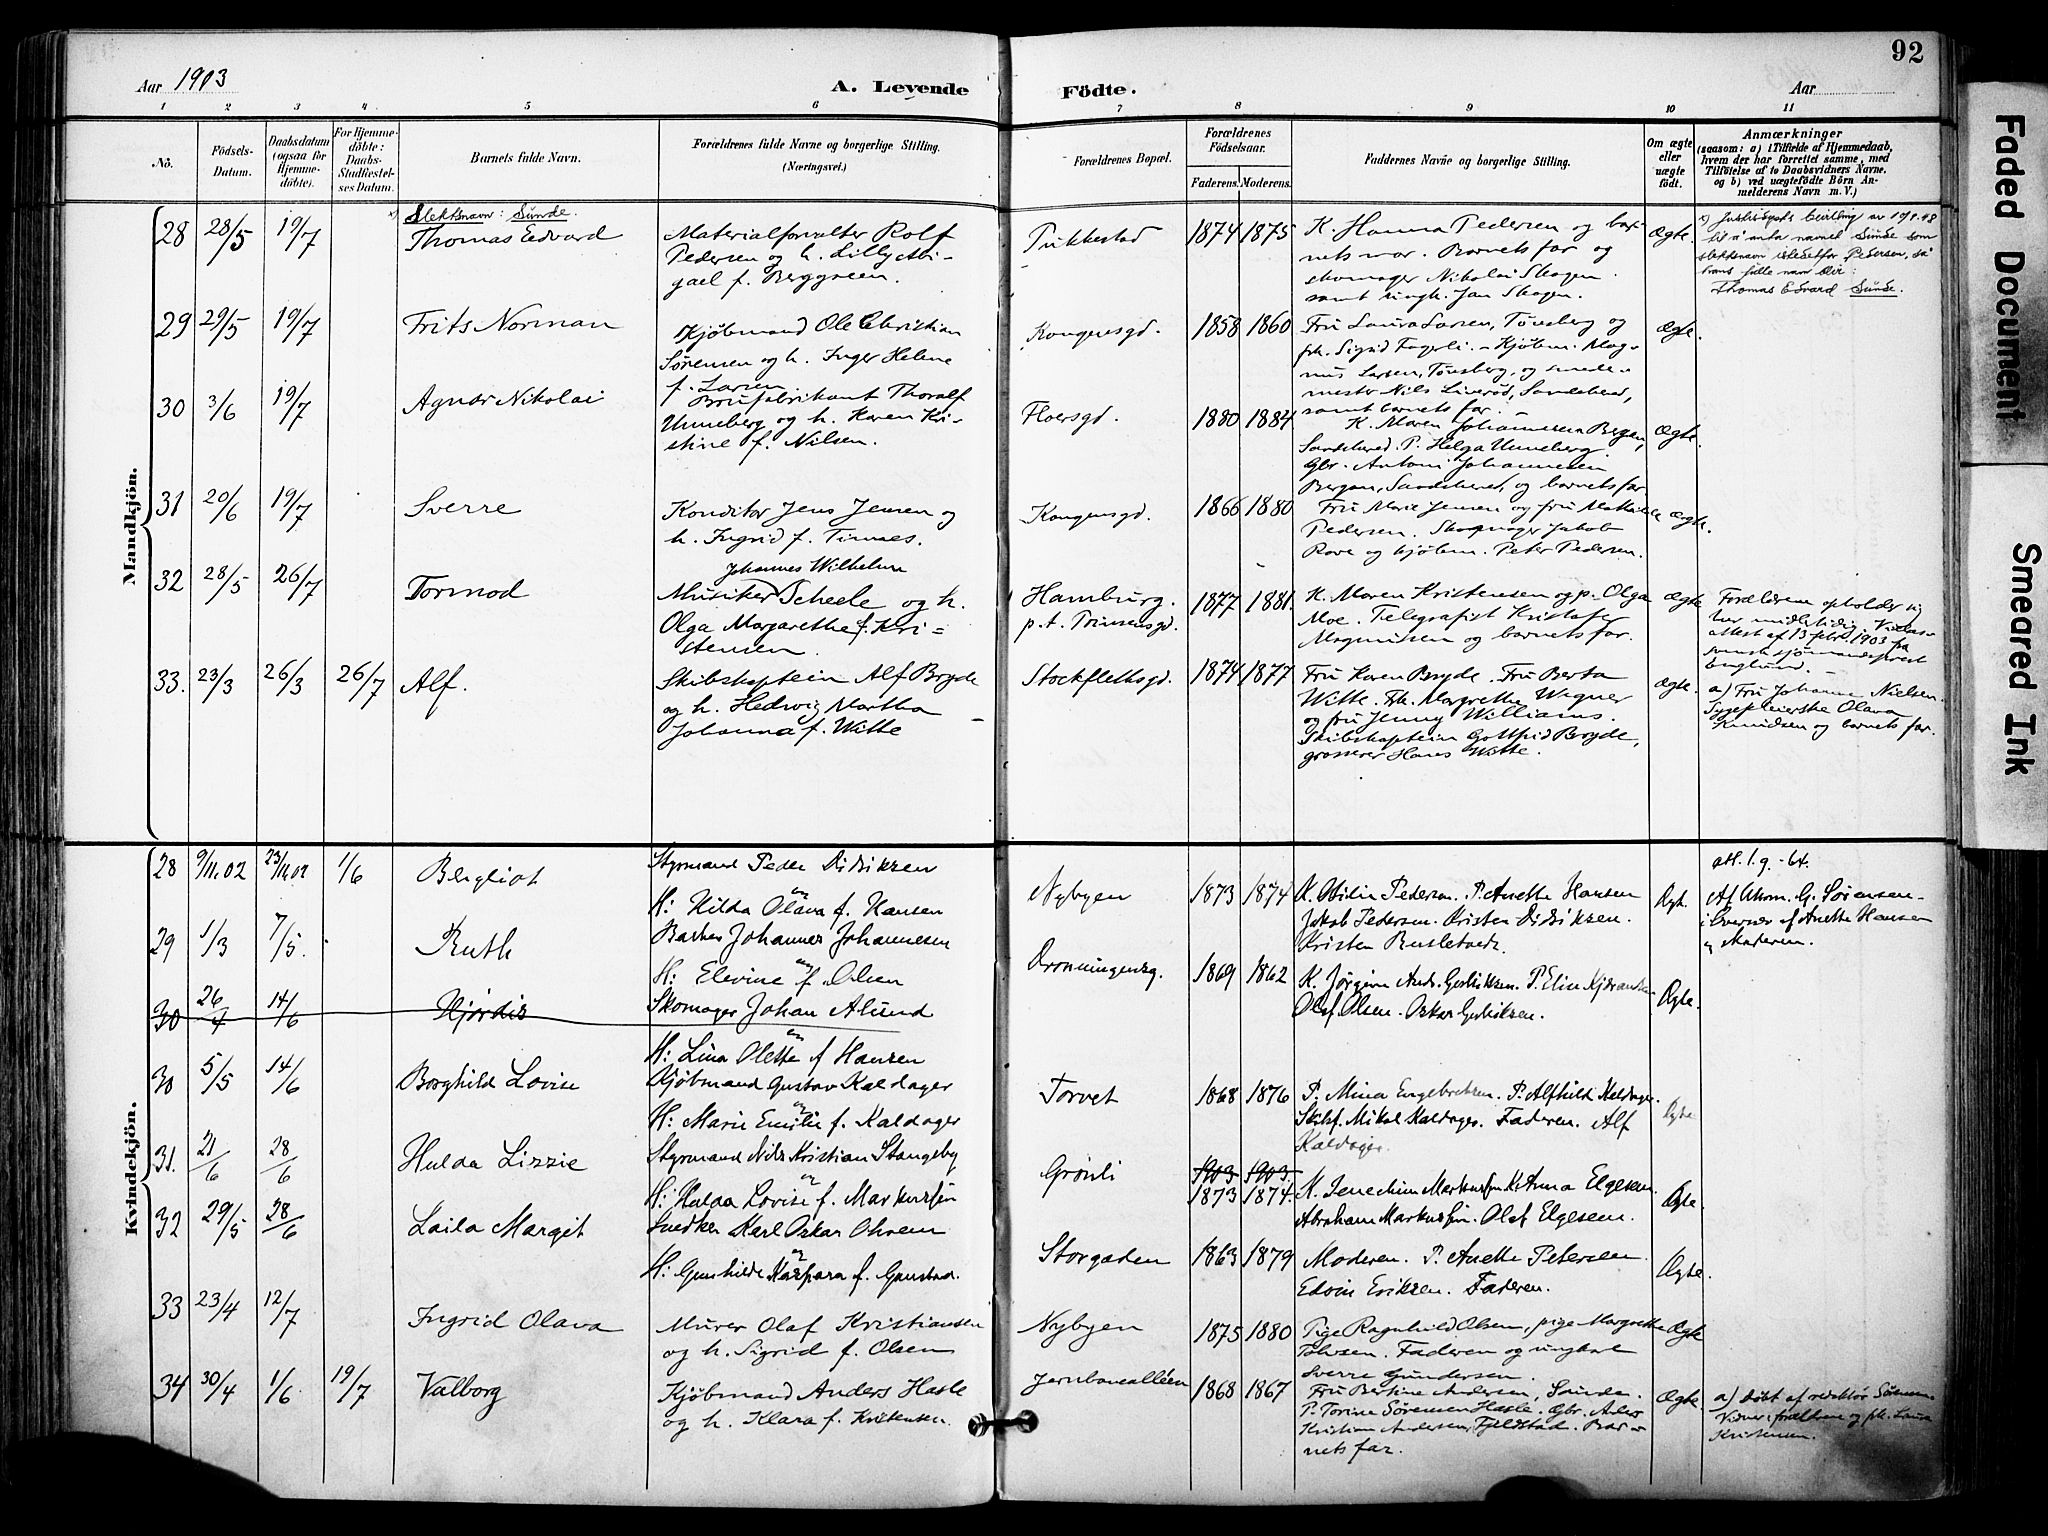 92
Aar 1903
A. Levende
Födte.
Aar
1 2 3 4 5 6 7 8 9 10 11
No.
Födsels-Datum.
Daabsdatum (ogsaa for Hjemmedöbte).
For Hjemmedöbte: Daabs-Stadfæstelses Datum.
Barnets fulde Navn.
Forældrenes fulde Navne og borgerlige Stilling.
(Næringsvei.)
Forældrenes Bopæl.
Forældrenes Födselsaar.
Faderens. Moderens.
Faddernes Navne og borgerlige Stilling.
Om ægte eller uægte födt.
Anmærkninger
(saasom: a) i Tilfælde af Hjemmedaab, hvem der har forrettet samme, med Tilföielse af to Daabsvidners Navne. og b) ved uægtefödte Börn Anmelderens Navn m. V.)
Mandkjön.
x) Slektsnavn: Sunde.
28 28/5 19/7 Thomas Edvard
Materialforvalter Rolf
Pedersen og h. Lilly Abi-
gael f. Berggreen.
1874 1875
K. Hanna Pedersen og bar-
nets mor. Barnets far og
skomager Nikolai Skogen
samt ungk. Jan Skogen.
Ægte.
til å anta navnet Sunde som
slektsnavn istedetfor Pedersen, så
hans fulle navn blir:
Thomas Edvard Sunde.
29 29/5 19/7 Frits Norman
Kjøbmand Ole Christian
Sørensen og h. Inger Helene
f. Larsen
Kongensgd.
1858 1860
Fru Laura Larsen, Tønsberg og
frk. Sigrid Fagerli. - Kjøbm. Mag-
nus Larsen, Tønsberg, og smede-
mester Nils Liverød, Sandeherred,
samt barnets far.
Ægte.
30 3/6 19/7 Agnar Nikolai
Brusfabrikant Thoralf
Unneberg og h. Karen Kri-
stine f. Nilsen.
Floersgd.
1880 1884
K. Maren Johannesen Bergan,
Sandeherred. P. Helga Unneberg.
Gbr. Anton Johannesen
Bergan, Sandeherred, og barnets far.
Ægte.
31 20/6 19/7 Sverre
Konditor Jens Jensen og
h. Ingrid f. Tinnes.
Kongensgd.
1866 1880
Fru Marie Jensen og fru Mathilde
Pedersen. Skomager Jakob
Rove og kjøbm. Peter Pedersen.
Ægte.
32 28/5 26/7 Tormod
Johannes Wilhelm
Musiker Scheele og h.
Olga Margarethe f. Kri-
stensen.
Hamburg.
p.t. Prinsensgd.
1877 1881.
K. Maren Kristensen og p. Olga
Moe. Telegrafist Kristofer
Magnussen og barnets far.
Ægte
Forældrene opholder sig
her midlertidig. Vielses-
attest af 13 febr. 1903 fra
svensk sjömandsprest
England.
33. 23/3 26/3 26/7 Alf.
Skibskaptein Alf Bryde
og h. Hedwig Martha
Johanna f. Witte
Stockflethsgd.
1874 1877
Fru Karen Bryde. Fru Berta
Witte. Frk. Margrethe Wegner
og fru Jenny Williams.
Skibskaptein Gottfried Bryde,
grosserer Hans Witte.
Ægte.
a) Fru Johanne Nielsen
Sygepleierske Olava
Knudsen og barnets far.
Kvindekjön.
28 9/11.02 23/11.02 1/6 Bergliot
Styrmand Peder Didriksen
H: Hilda Olava f. Hansen
Nybyen
1873 1874
K. Otilie Pedersen. P. Anette Hansen
Jakob Pedersen. Kristen Didriksen.
Ægt.
att. 1.9.-64.
29 1/3 7/5. Ruth
Johannes Johannesen
H: Elevine f. Olsen
Dronningensg.
1869 1862
Olaf Olsen.
Ægte.
30 26/4 14/6 Hjördis
Skomager Johan Alund
H: Lina Olette f Hansen
30 5/5 14/6 Borghild Lovise
Kjøbmand Gustav Kaldager
H: Marie Emilie f. Kaldager
Torvet
1868 1876
P. Mina Engebretsen. P. Alfhild Kaldager.
Skibsf. Mikal Kaldager. Faderen. Alf
Kaldager.
Ægte
31. 21/6 28/6 Hulda Lizzie
Styrmand Nils Kristian Stangeby
H: Hulda Lovise f. Markussen
Grønli
1903 1903
1873 1874.
Abraham Markussen. Olaf Elgesem.
Ægte.
32 29/5 28/6 Laila Margit
Snedker Karl Oskar Ohrem
H: Gunhilde Kaspara f. Gunstad.
Storgaden
1863 1879
Moderen. P. Anette Petersen
Edvin Eriksen. Faderen.
Ægte.
33 23/4 12/7 Ingrid Olava
Murer Olaf Kristiansen
og h. Sigrid f. Olsen
Nybyen
1875 1880
Pige Ragnhild Olsen, pige Margrethe
Faderen og ungkarl
Sverre Gundersen.
Ægte
34 30/4 1/6 19/7 Valborg
Kjøbmand Anders Hasle
og h. Klara f. Kristensen.
Jernbanealléen
1868 1867
Fru Bertine Andersen, Sande.
P. Torine Sørensen Hasle. Gbr. Anders
Kristian Andersen, Fjeldstad. Bar-
nets far.
Ægte.
a) Døbt af redaktør Sörensen
Vidner: forældrene og frk. Laura
Kristensen.
Faded Document
Smeared Ink